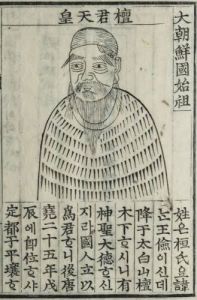 大朝鮮國始祖
檀君天皇
姓은桓氏오諱
는王儉이신데
降于太白山檀
木下ᄒᆞ시니有
神聖大德ᄒᆞ신
지라國人立以
爲君ᄒᆞ니後唐
堯二十五年戊
辰에卽位ᄒᆞ샤
定都于平壤ᄒᆞ